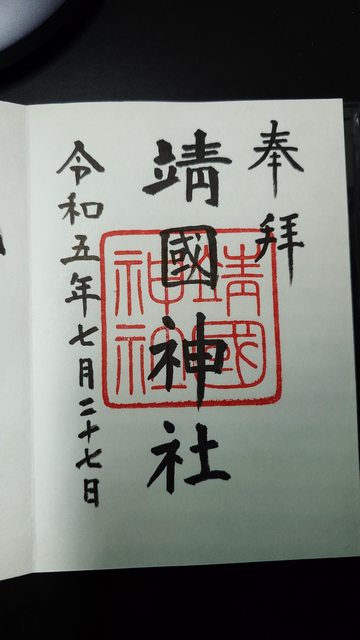 奉拝
靖國神社
靖國
神社
令和五年七月二十七日